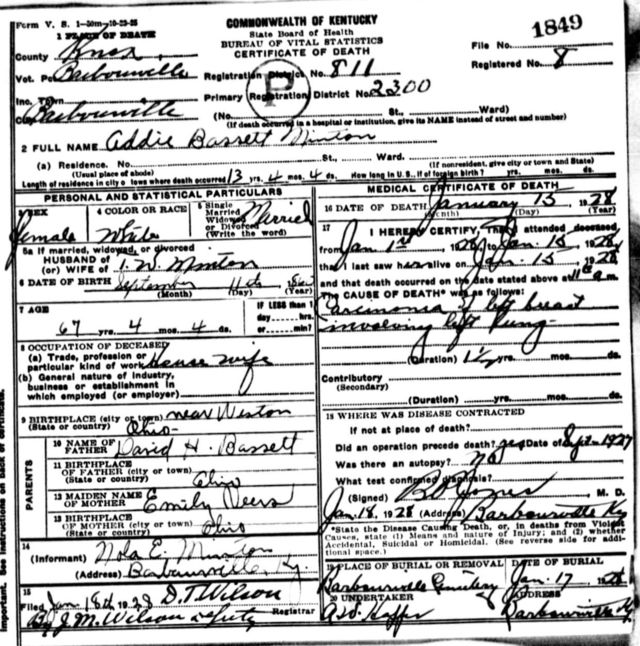 Form V. S. 1-50m-10-23-25
COMMONWEALTH OF KENTUCKY
State Board of Health
BUREAU OF VITAL STATISTICS
CERTIFICATE OF DEATH
1 PLACE OF DEATH
County Knox
File No. 1849
Registered No. 8
Vot. Barbourville
Registration District No. 811
Inc. Town
Primary Registration District No. 2300
P
Barbourville
(No. St., Ward)
(If death occurred in a hospital or institution, give its NAME instead of street and number)
2 FULL NAME Addie Bassett Minton
(a) Residence. No. St., Ward.
(Usual place of abode) (If nonresident, give city or town and State)
Length of residence in city or town where death occurred 13 yrs. 4 mos. 4 ds. How long in U.S., if of foreign birth? yrs. mos. ds.
PERSONAL AND STATISTICAL PARTICULARS
SEX Female
4 COLOR OR RACE White
5 Single Married Widowed or Divorced (Write the word) Married
5a If married, widowed, or divorced
HUSBAND OF
(or) WIFE of Minton
6 DATE OF BIRTH September 11th
(Month) (Day) (Year)
7 AGE
67 yrs. 4 mos. 4 ds.
IF LESS than 1
day hrs.
or min?
8 OCCUPATION OF DECEASED
(a) Trade, profession or
particular kind of work House wife
(b) General nature of industry,
business or establishment in
which employed (or employer)
9 BIRTHPLACE (city or town) near Weston
(State or country) Ohio
PARENTS
10 NAME OF FATHER David H. Bassett
11 BIRTHPLACE
OF FATHER (city or town) Ohio
(State or country)
12 MAIDEN NAME
OF MOTHER Emily
13 BIRTHPLACE
OF MOTHER (city or town) Ohio
(State or country)
14
(Informant) Nola E. Minton
(Address) Barbourville Ky.
15
Filed Jan 18th 1928 D.T. Wilson
Registrar
By J.M. Wilson Deputy
MEDICAL CERTIFICATE OF DEATH
16 DATE OF DEATH January 15 1928
(Month) (Day) (Year)
17 I HEREBY CERTIFY, That I attended deceased
from Jan 1st 1928 to Jan. 15 1928
that I last saw her alive on Jan. 15 1928
and that death occurred on the date stated above at 11 a m.
The CAUSE OF DEATH* was as follows:
Carcinoma of left breast
involving left lung
(Duration) 1½ yrs. mos. ds.
Contributory
(Secondary)
(Duration) yrs. mos. ds.
18 WHERE WAS DISEASE CONTRACTED
If not at place of death?
Did an operation precede death? yes Date of Sept-1927
Was there an autopsy? no
What test confirmed diagnosis?
(Signed) Jones M. D.
Jan. 18, 1928 (Address) Barbourville Ky
*State the Disease Causing Death, or, in deaths from Violent
Causes, state (1) Means and nature of Injury; and (2) whether
Accidental, Suicidal or Homicidal. (See reverse side for addi-
tional space.)
19 PLACE OF BURIAL OR REMOVAL DATE OF BURIAL
Barbourville Cemetery Jan. 17 1928
20 UNDERTAKER ADDRESS
Barbourville Ky.